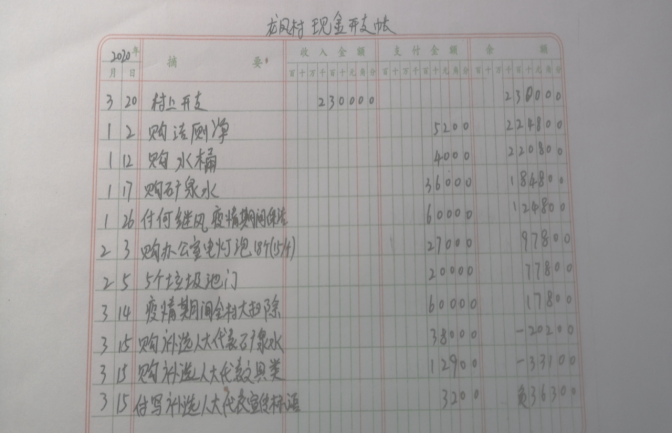 龙凤村现金开支帐
2020年 摘要 收入金额 支付金额 余额
月 日 百十万千百十元角分 百十万千百十元角分 百十万千百十元角分
3 20 村上开支 230000 230000
1 2 购洁厕净 5200 224800
1 12 购水桶 4000 220800
1 17 购矿泉水 36000 184800
1 26 付何继风疫情期间生活 60000 124800
2 3 购办公室电灯泡18个(15/个) 27000 97800
2 5 5个垃圾池门 20000 77800
3 14 疫情期间全村大扫除 60000 17800
3 15 购补选人大代表矿泉水 38000 -20200
3 15 购补选人大代表文具类 12900 -33100
3 15 付写补选人大代表宣传标语 3200 负36300